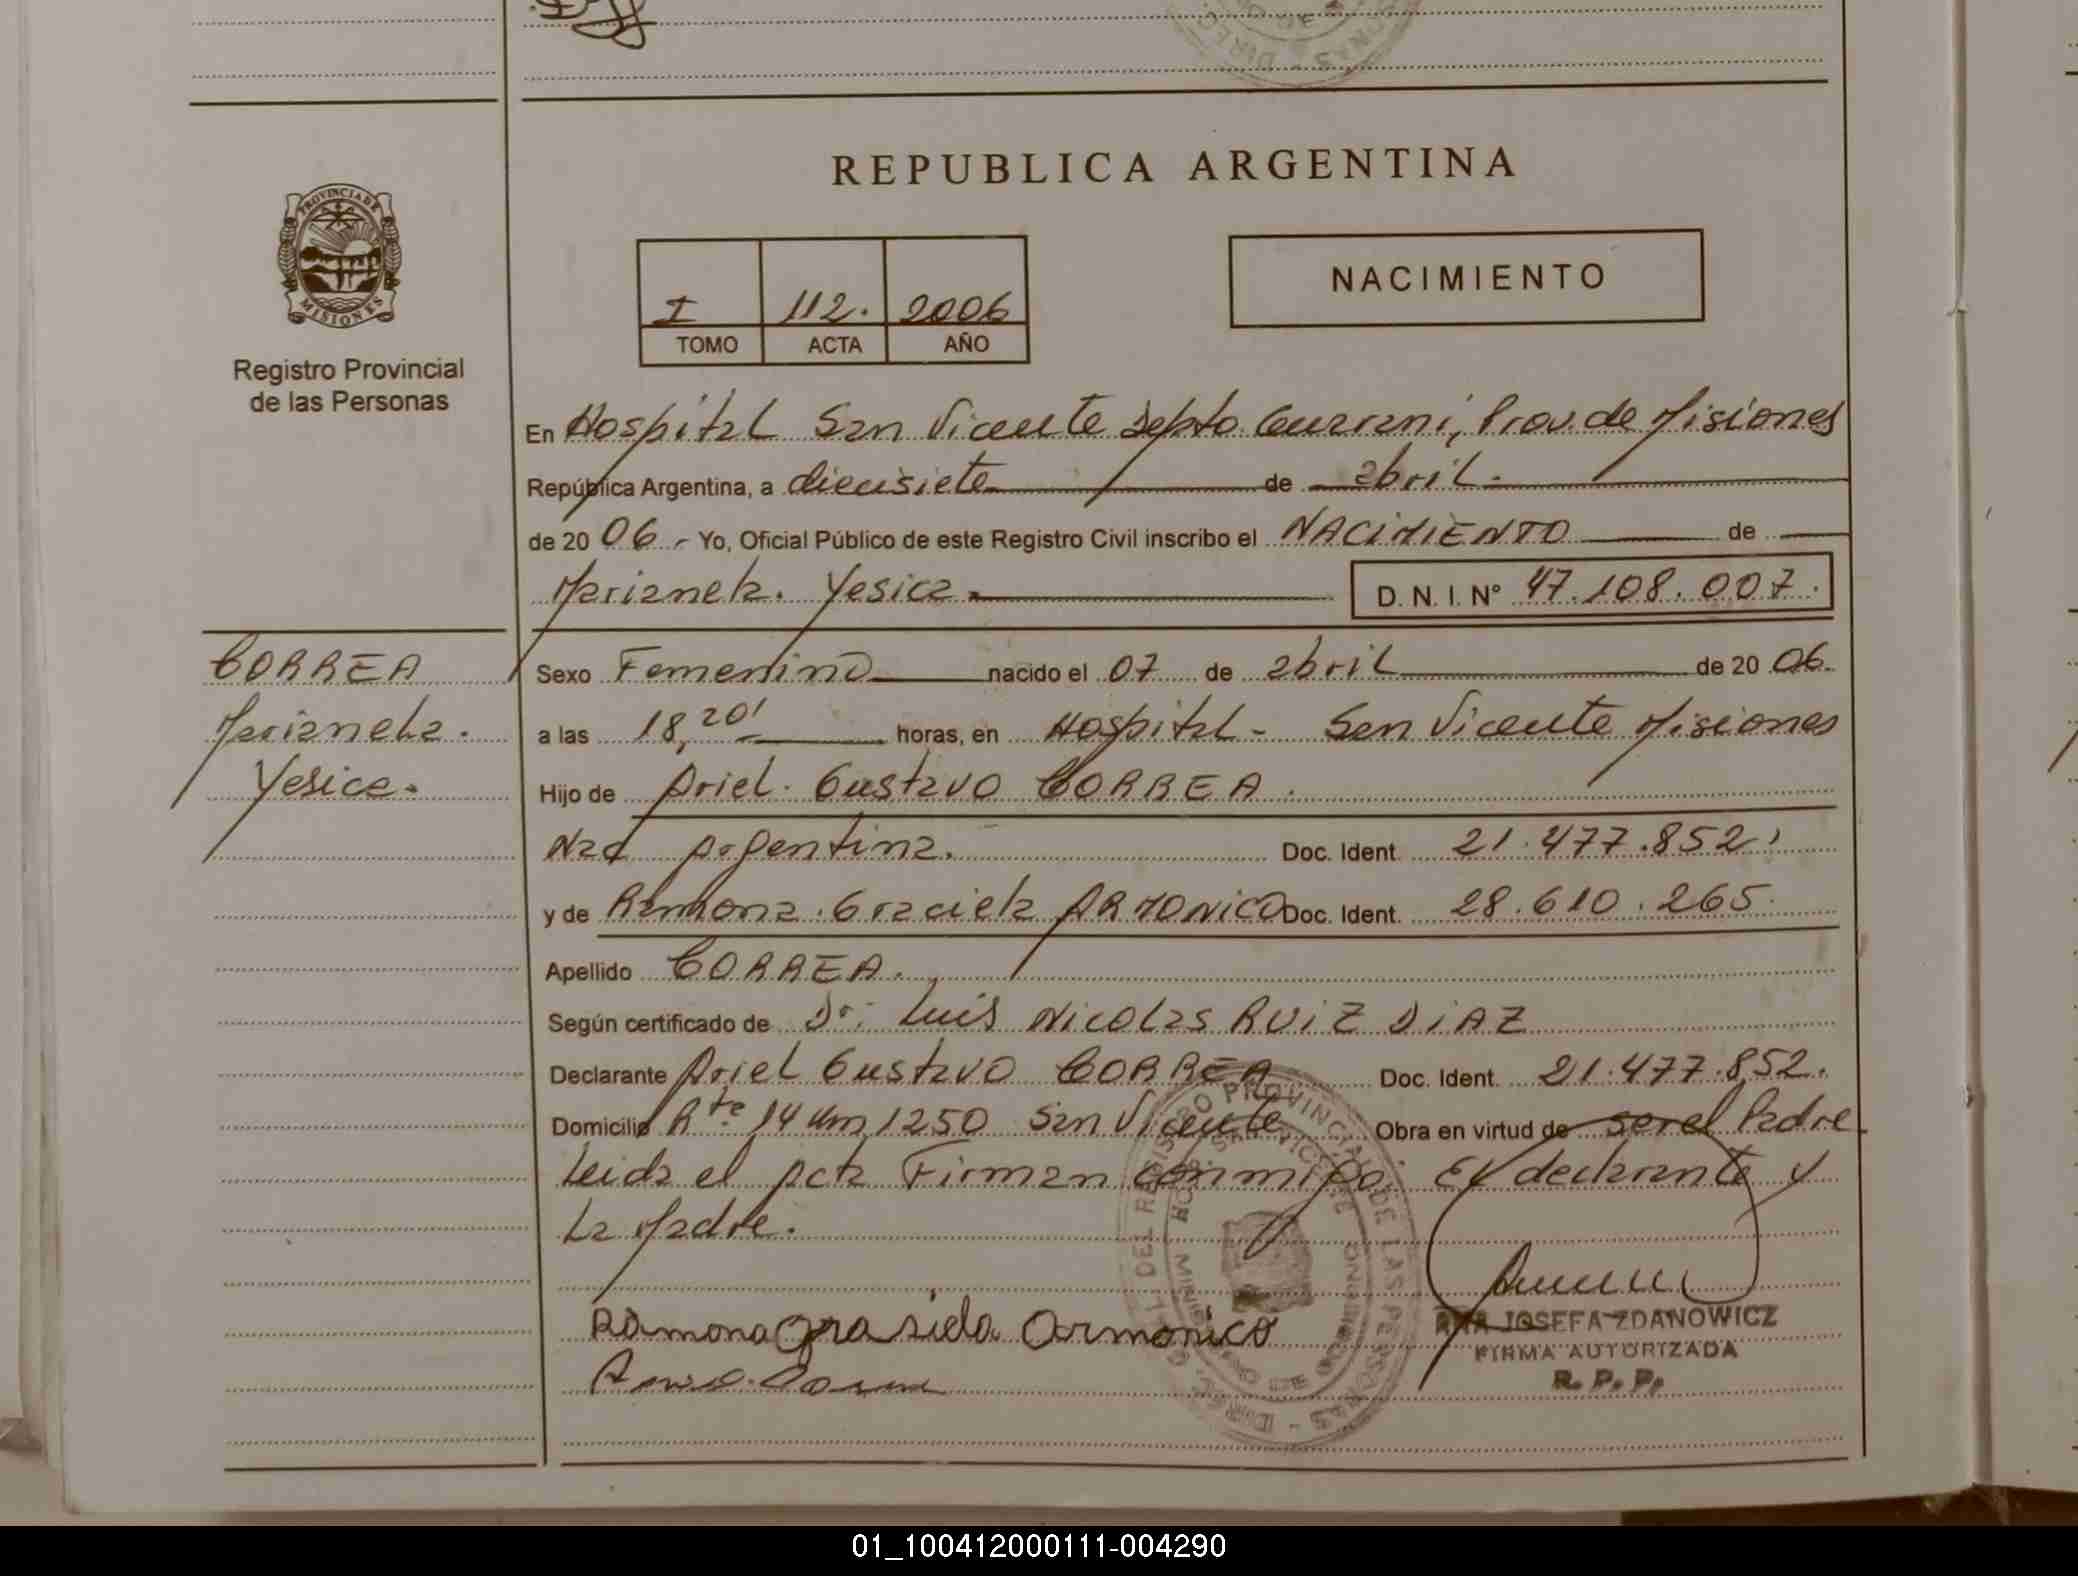 REPUBLICA ARGENTINA
PROVINCIA DE
MISIONES
Registro Provincial
de las Personas
I 112. 2006
TOMO ACTA AÑO
NACIMIENTO
En Hospital San Vicente Depto Guarani, Prov. de Misiones
República Argentina, a diecisiete de abril.
de 20 06 - Yo, Oficial Público de este Registro Civil inscribo el NACIMIENTO de
Marianela. Yesica.
D. N. I. N° 47.108.007.
CORREA
Marianela.
Yesica.
Sexo Femenino nacido el 07 de abril de 20 06.
a las 18,20' horas, en Hospital - San Vicente Misiones
Hijo de Ariel. Gustavo CORREA.
Nac Argentina. Doc. Ident. 21.477.852
y de Ramona. Graciela ARMONICO Doc. Ident. 28.610.265.
Apellido CORREA.
Según certificado de Dr. Luis Nicolas RUIZ DIAZ
Declarante Ariel Gustavo CORREA Doc. Ident. 21.477.852.
Domicilio Rte. 14 km 1250 San Vicente Obra en virtud de ser el Padre
Leida el Acta Firman conmigo. El declarante y
La Madre.
Ramona Grasiela Armonico
ANA JOSEFA ZDANOWICZ
FIRMA AUTORIZADA
R. P. P.
DEL REGISTRO PROVINCIAL DE LAS PERSONAS
01_100412000111-004290